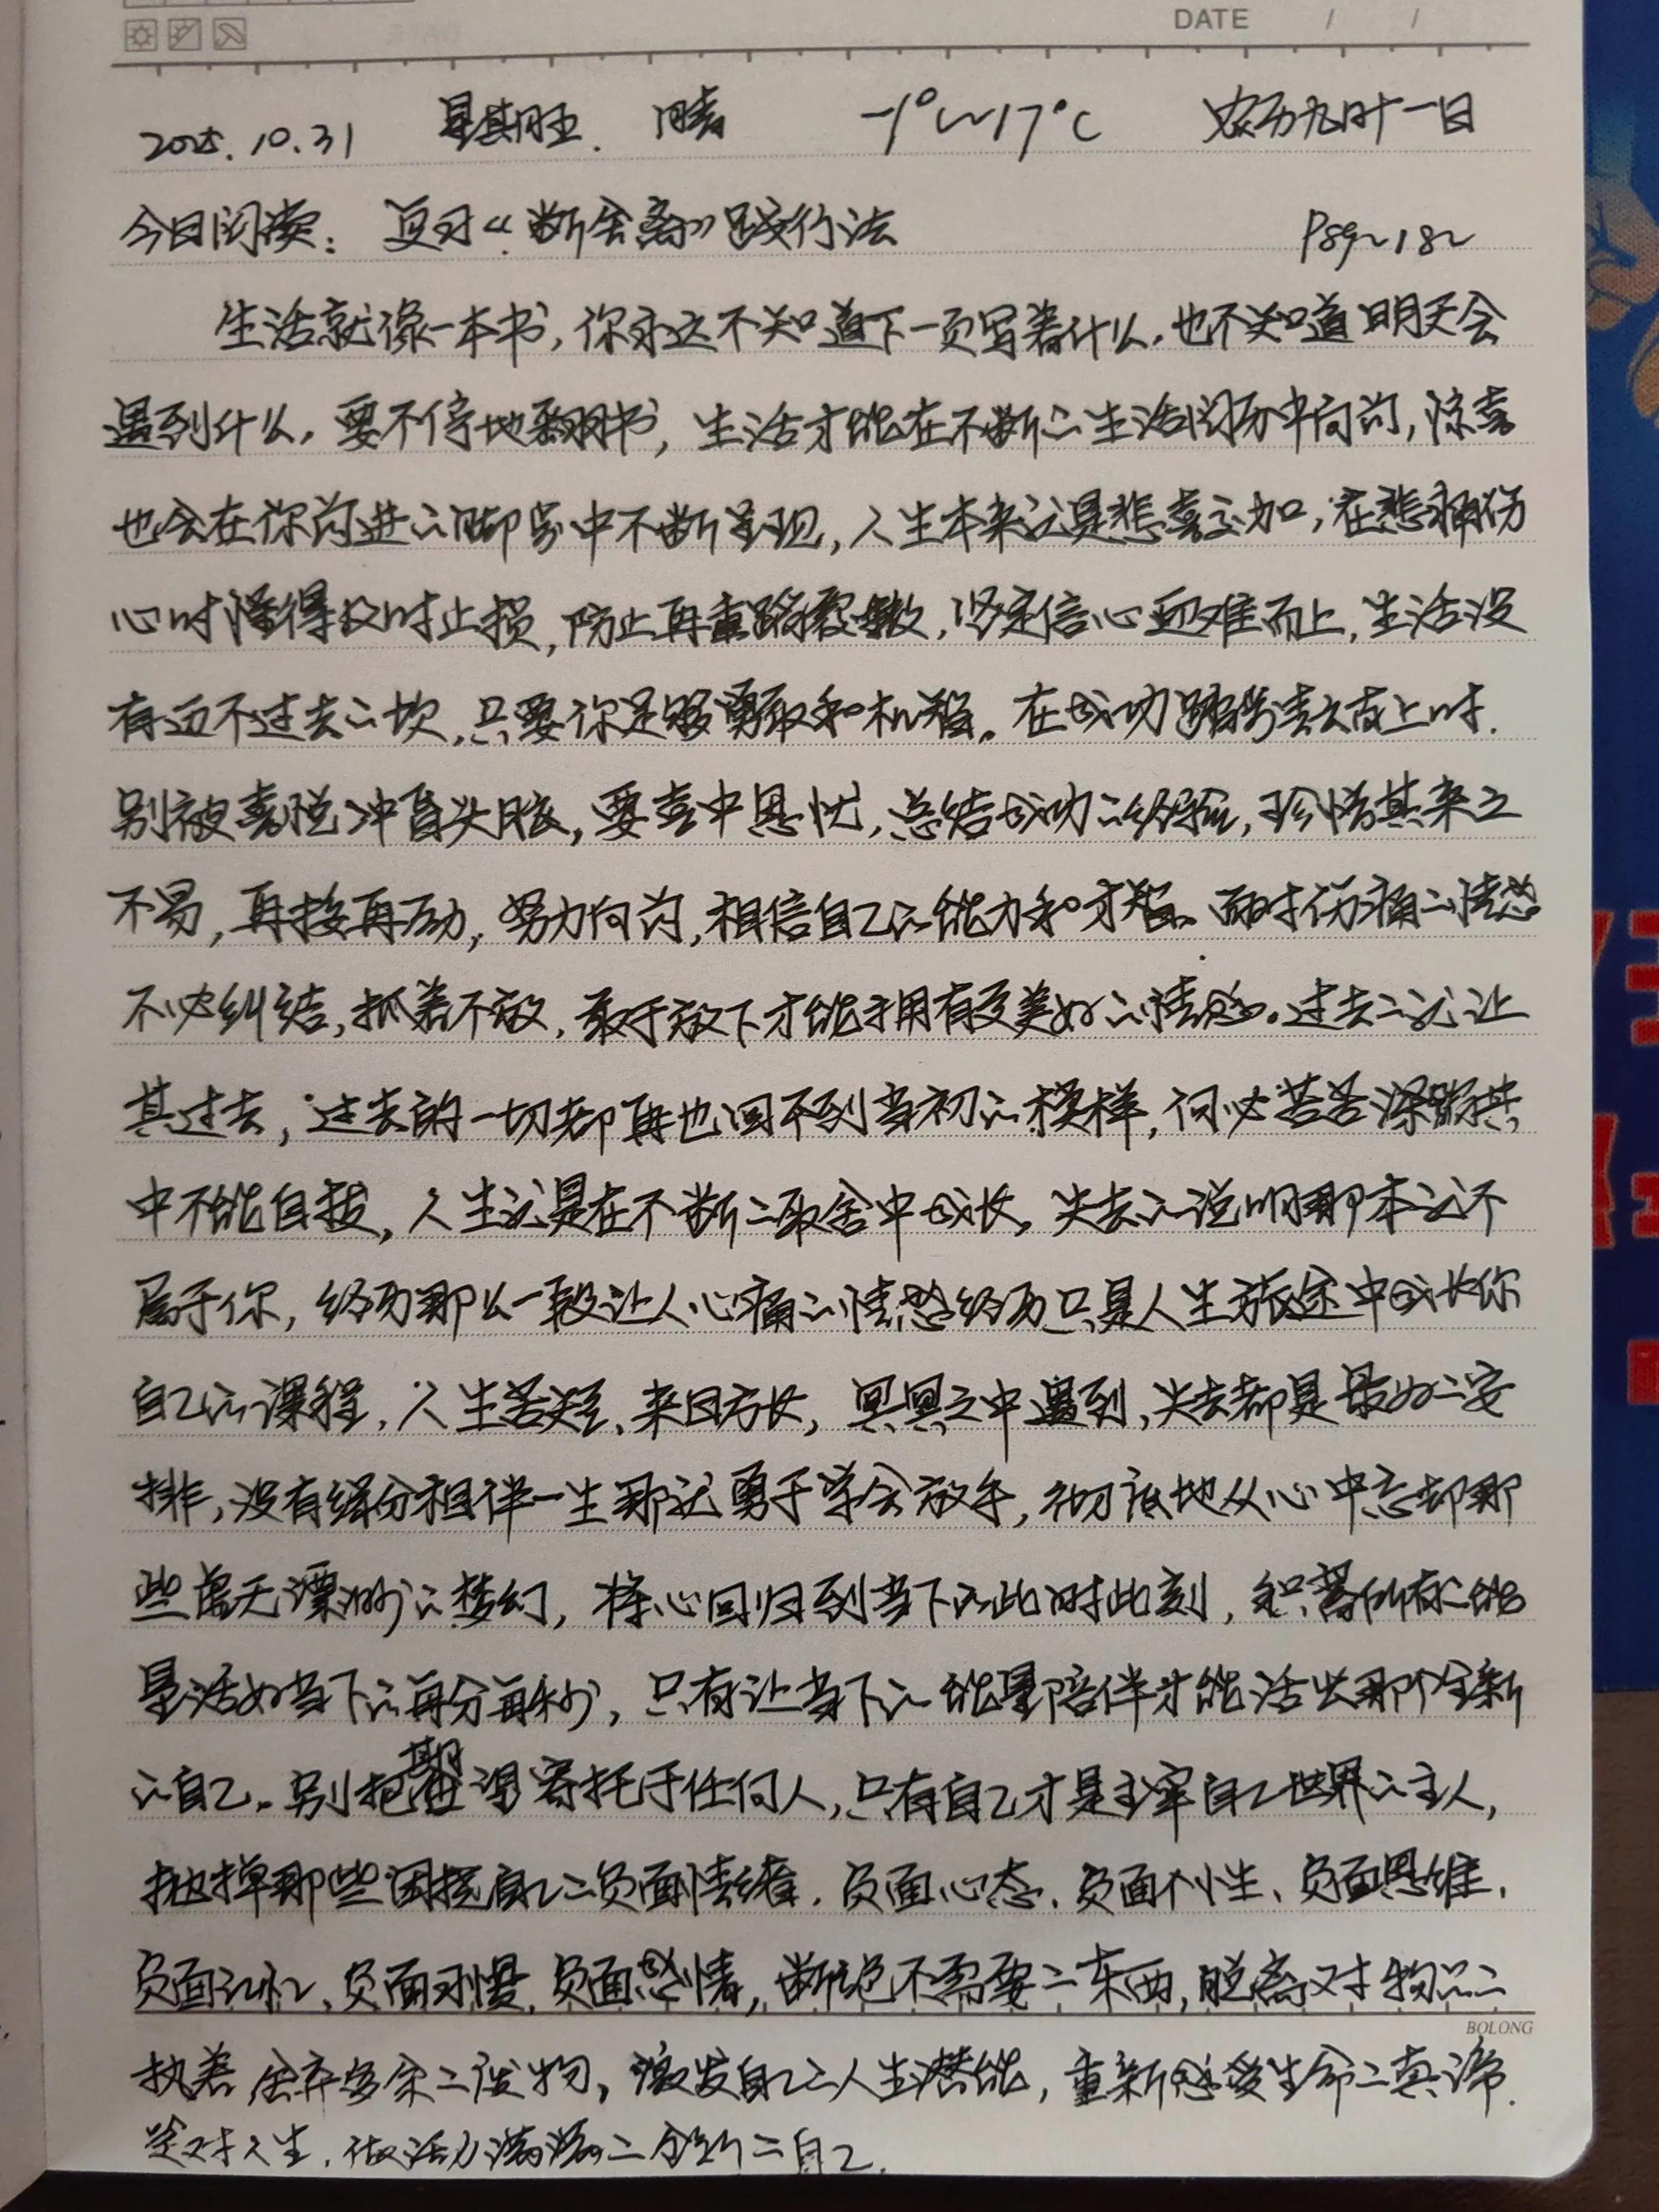 DATE / /
2025.10.31 星期五. 晴 -1°~17°C 农历九月十一日
今日阅读: 应对“断舍离”践行法 P89~182
生活就像一本书,你永远不知道下一页写着什么,也不知道明天会
遇到什么,要不停地翻书,生活才能在不断的生活阅历中向前,惊喜
也会在你前进的脚步中不断呈现,人生本来就是悲喜交加,在悲痛伤
心时懂得及时止损,防止再重蹈覆辙,坚定信心迎难而上,生活没
有迈不过去的坎,只要你足够勇敢和机智。在成功踏步青云直上时.
别被喜悦冲昏头脑,要喜中思忧,总结成功的经验,珍惜其来之
不易,再接再励,努力向前,相信自己的能力和才智。面对伤痛的情感
不必纠结,抓着不放,敢于放下才能拥有更美好的情感。过去的就让
其过去,过去的一切都再也回不到当初的模样,何必苦苦深陷其
中不能自拔,人生就是在不断的取舍中成长,失去的说明那本就不
属于你,经历那么一段让人心痛的情感经历只是人生旅途中成长你
自己的课程,人生苦短,来日方长,冥冥之中遇到,失去都是最好的安
排,没有缘分相伴一生那就勇于学会放手,彻底地从心中忘却那
些虚无漂渺的梦幻,将心回归到当下的此时此刻,积蓄所有的能
量活好当下的每分每秒,只有让当下的能量陪伴才能活出那个全新
的自己。别把期望寄托于任何人,只有自己才是主宰自己世界的主人,
抛掉那些困扰自己的负面情绪.负面心态.负面个性、负面思维.
负面记忆、负面习惯.负面感情,断绝不需要的东西,脱离对物品的
BOLONG
执着 舍弃多余的废物,激发自己的人生潜能,重新感受生命的真谛.
笑对人生.做活力满满的全新的自己.